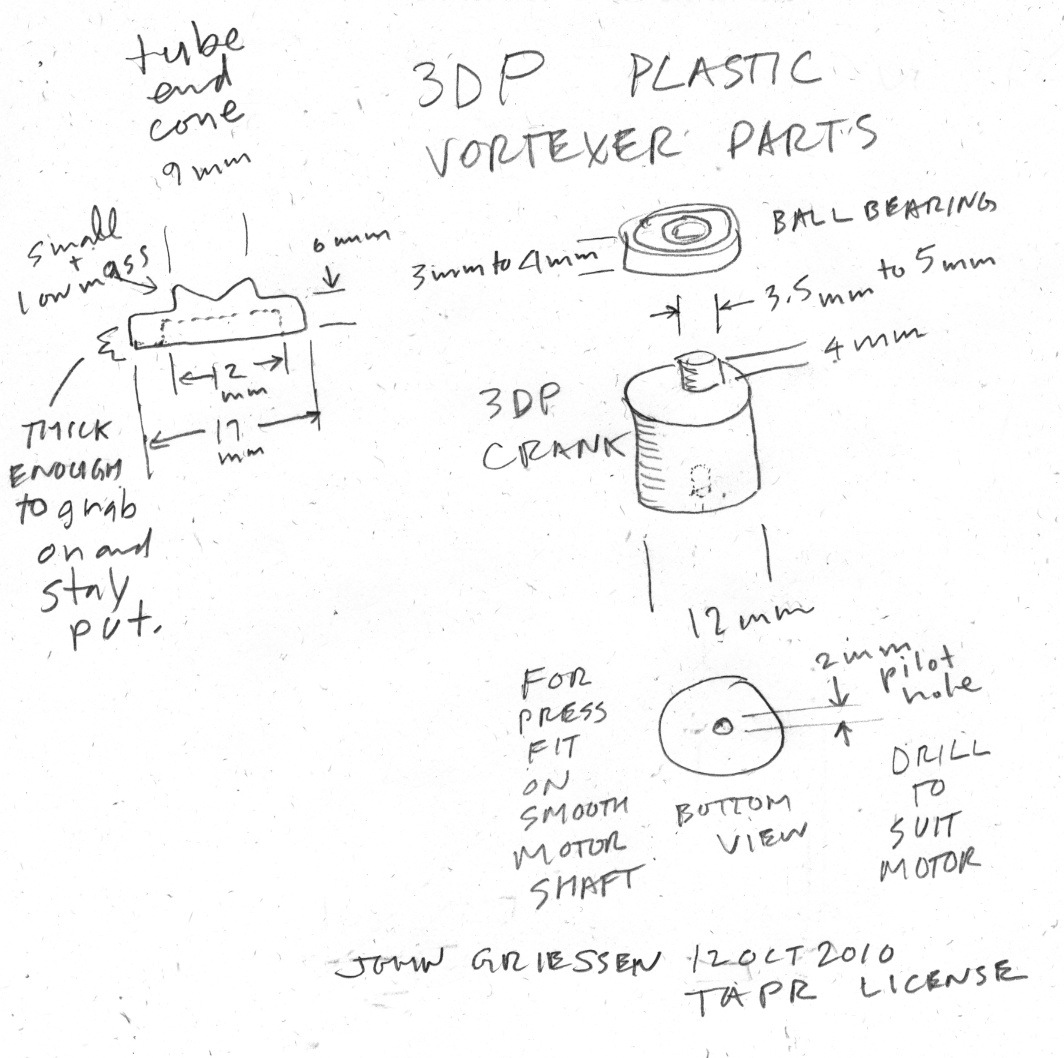 tube
end
cone
9 mm
3DP PLASTIC
VORTEXER PARTS
small
+
low mass
6 mm
12
mm
17
mm
THICK
ENOUGH
to grab
on and
stay
put.
BALL BEARING
3mm to 4mm
3.5mm to 5mm
4 mm
3DP
CRANK
12 mm
2mm
pilot
hole
FOR
PRESS
FIT
ON
SMOOTH
MOTOR
SHAFT
BOTTOM
VIEW
DRILL
TO
SUIT
MOTOR
JOHN GRIESSEN 12 OCT 2010
TAPR LICENSE